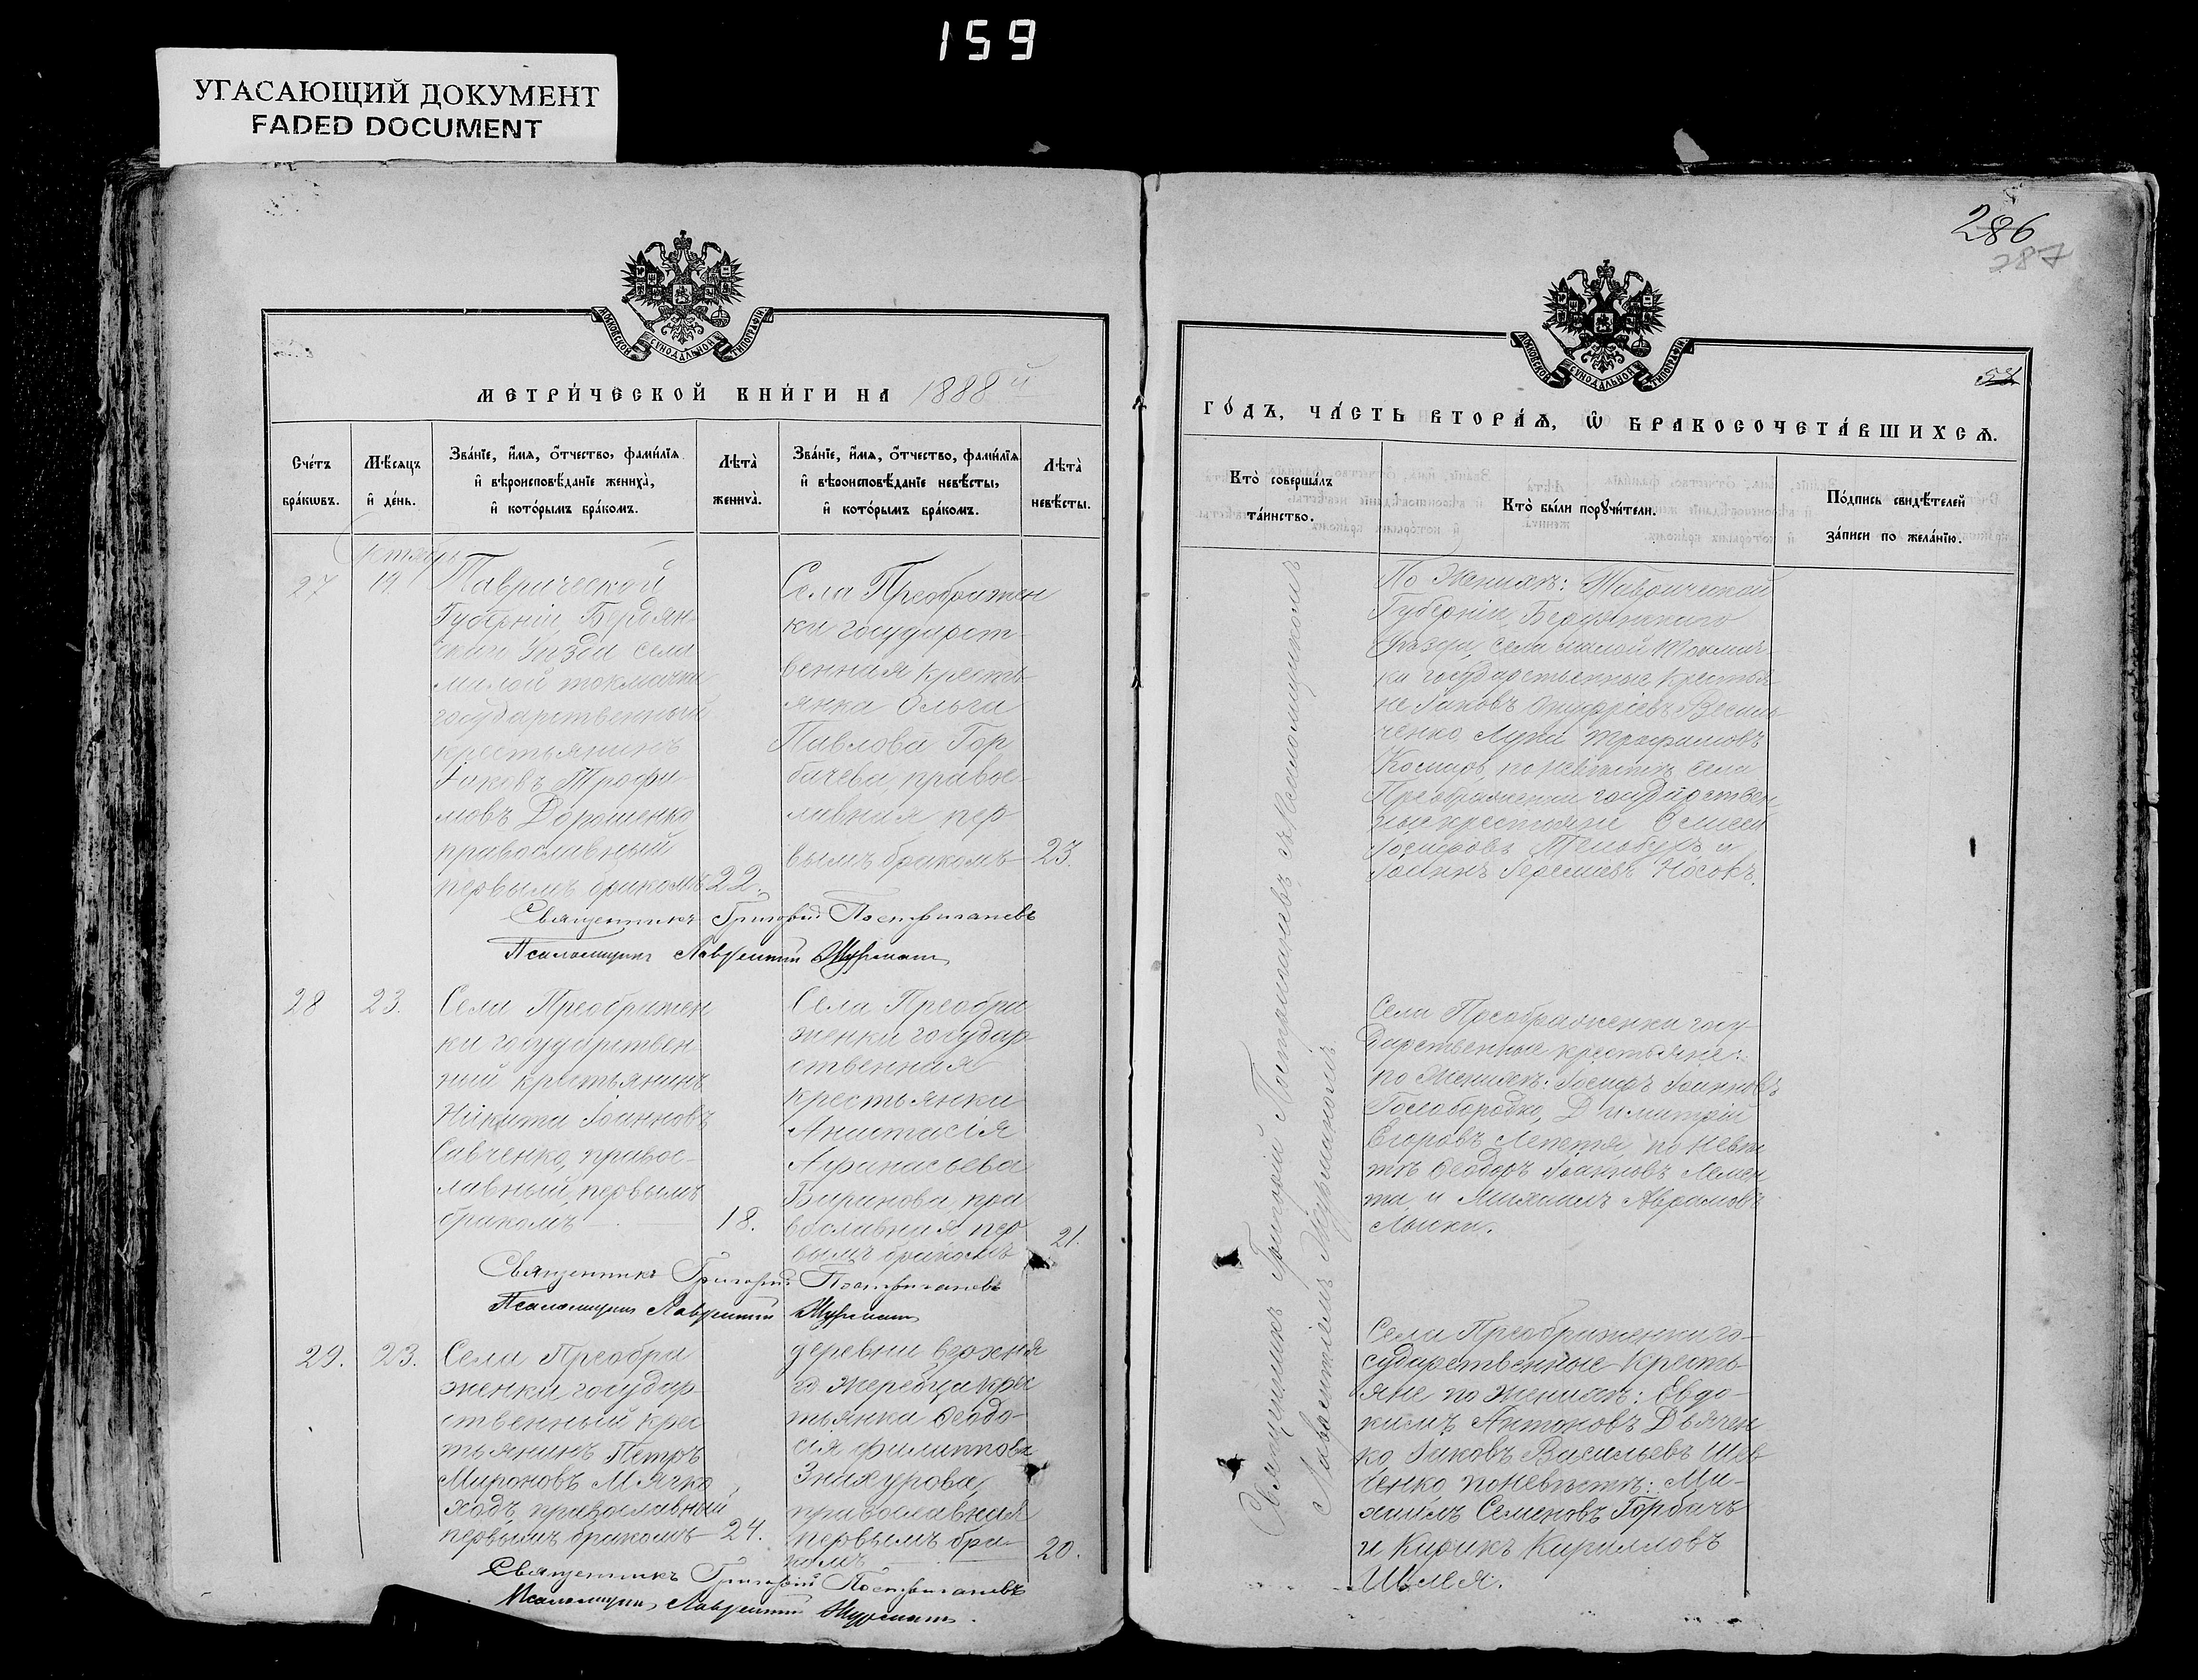 159
УГАСАЮЩИЙ ДОКУМЕНТ
FADED DOCUMENT
МОСКОВСКОЙ СΥНОДАЛЬНОЙ ТИПОГРАФІИ.
МЕТРИ́ЧЕСКОЙ КНИ́ГИ НА 1888й
Сче́тъ бра́кωвъ.
Мѣ́сяцъ и҆ де́нь.
Зва́нїе, и҆́мѧ, ѻ҆́тчество, фами́лїѧ
и҆ вѣроисповѣ́данїе жениха̀,
и҆ кото́рымъ бра́комъ.
Лѣ́та̀ жениха̀.
Зва́нїе, и҆́мѧ, ѻ҆́тчество, фами́лїѧ
и҆ вѣроисповѣ́данїе невѣ́сты,
и҆ кото́рымъ бра́комъ.
Лѣ́та̀ невѣ́сты.
Октябрь
27
19.
Таврической
Губерніи Бердян
скаго Уѣзда села
малой токмачки
государственный
крестьянинъ
Іаковъ Трофи-
мовъ Дорошенко
православный
первымъ бракомъ 22.
Села Преображен
ки государст-
венная кресть-
янка Ольга
Павлова Гор
бачева, правос-
лавная пер
вымъ бракомъ 23.
Священникъ Григорій
Псаломщикъ Лаврентій
28
23.
Села Преображен
ки государствен-
ный крестьянинъ
Никита Іоанновъ
Савченко, правос-
лавный, первымъ
бракомъ 18.
Села Преобра
женки государ-
ственная
крестьянка
Анастасія
Афанасьева
Баранова, пра
вославная пер
вымъ бракомъ 21.
Священникъ Григорій
Псаломщикъ Лаврентій
29.
23.
Села Преобра
женки государ-
ственный крес
тьянинъ Петръ
Мироновъ Мячко
ходъ, православный
первымъ бракомъ 24.
деревни верхня
го жеребца крес
тьянка Ѳеодо-
сія филиппова
Знахурова,
православная
первымъ бра-
комъ 20.
Священникъ Григорій
Псаломщикъ Лаврентій
286
287
МОСКОВСКОЙ СΥНОДАЛЬНОЙ ТИПОГРАФІИ.
ГО́ДЪ, ЧА́СТЬ ВТОРА́Ѧ, Ѡ҆ БРАКОСОЧЕТА́ВШИХСѦ.
Кто̀ соверша́лъ та́инство.
Кто̀ бы́ли порꙋчи́тели.
По́дпись свидѣ́телей
за́писи по жела́нїю.
Священникъ Григорій съ псаломщикомъ
Лаврентіемъ
По Женихѣ: Таврической
Губерніи, Бердянскаго
Уѣзда, села малой Токмач-
ки государственные крестья-
не Іаковъ Онуфріевъ Василь
ченко, Лука Трофимовъ
по невѣстѣ, села
Преображенки государствен
ные крестьяне
Іосифовъ и
Іоаннъ Носокъ.
Села Преображенки госу-
дарственные крестьяне:
по Женихѣ: Іосифъ Іоанновъ
Голобородко, Димитрій
Егоровъ Лепетя, по невѣс
тѣ Ѳеодоръ Іоанновъ
и Михаилъ Аврамовъ
Лыска.
Села Преображенки го-
сударственные Кресть-
яне по женихѣ: Евдо-
кимъ Антоновъ Дьячен
ко, Іаковъ Васильевъ Шев
ченко по невѣстѣ: Ми-
хаилъ Семеновъ Горбачъ
и Кирикъ Кирилловъ
Шмля.